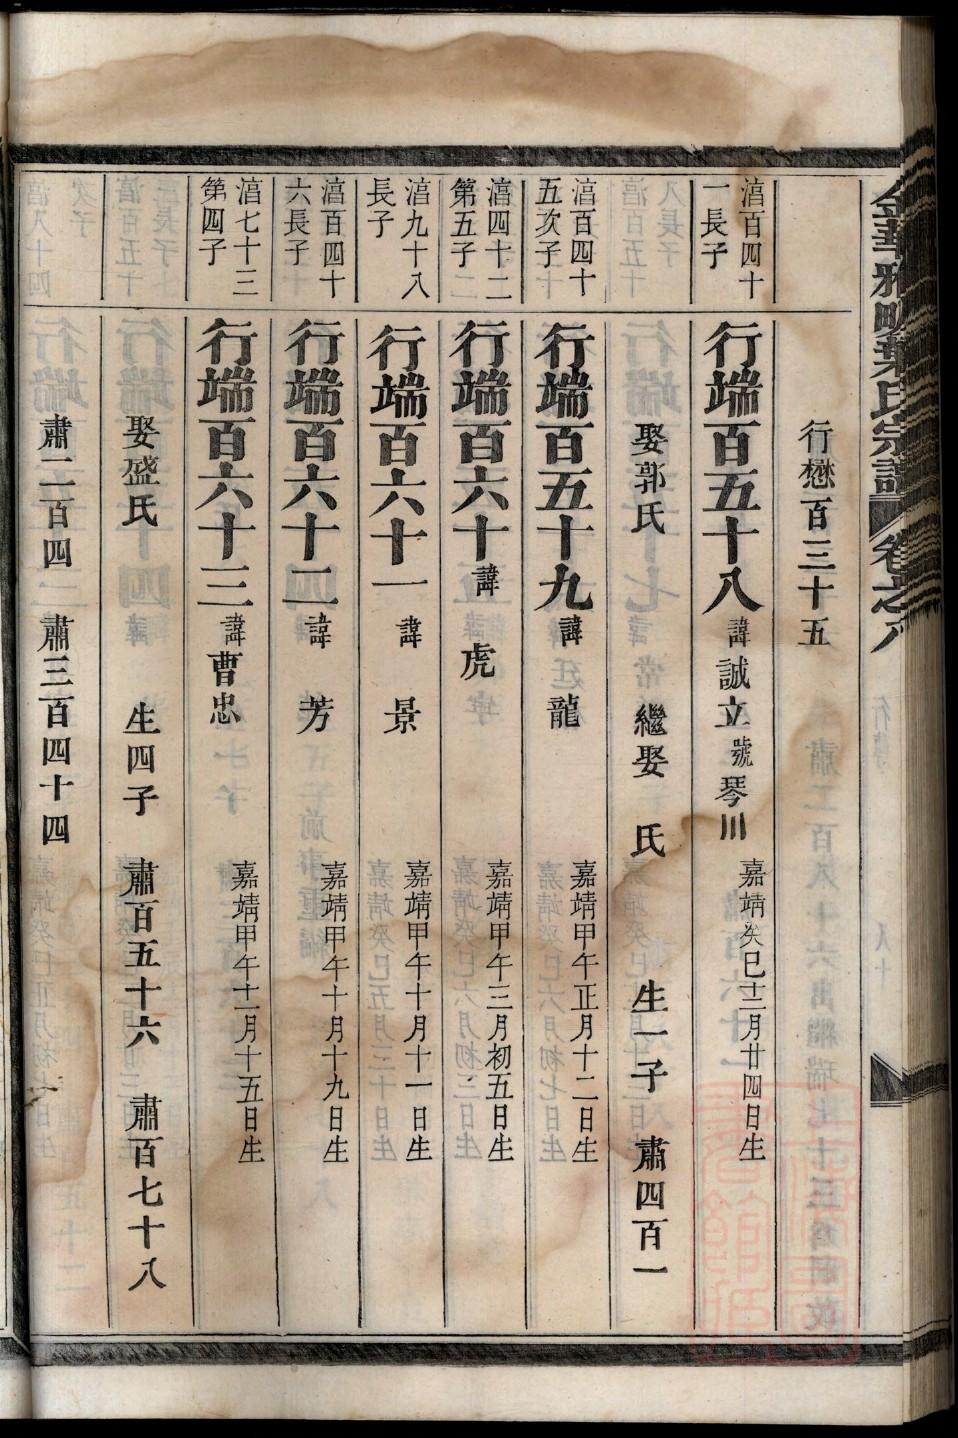 金華雅畈葉氏宗譜 卷之八
行懋百三十五
湻百四十
一長子
行端百五十八 諱誠立 號琴川 嘉靖癸巳十二月廿四日生
娶郭氏 繼娶 氏 生一子 肅四百一
湻百四十
五次子
行端百五十九 諱龍 嘉靖甲午正月十二日生
湻四十二
第五子
行端百六十 諱虎 嘉靖甲午三月初五日生
湻九十八
長子
行端百六十一 諱景 嘉靖甲午十月十一日生
湻百四十
六長子
行端百六十二 諱芳 嘉靖甲午十月十九日生
湻七十三
第四子
行端百六十三 諱曹忠 嘉靖甲午十二月十五日生
娶盛氏 生四子 肅百五十六 肅百七十八
肅二百四 肅三百四十四